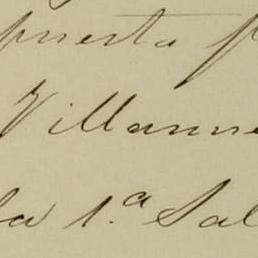 puesta p
Villanue
la 1.ª Sal